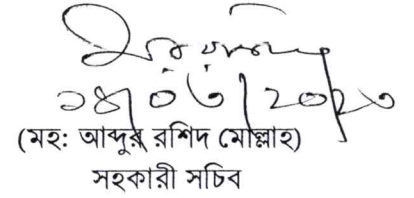 ১৪/০৩/২০২৩
(মহ: আব্দুর রশিদ মোল্লাহ)
সহকারী সচিব